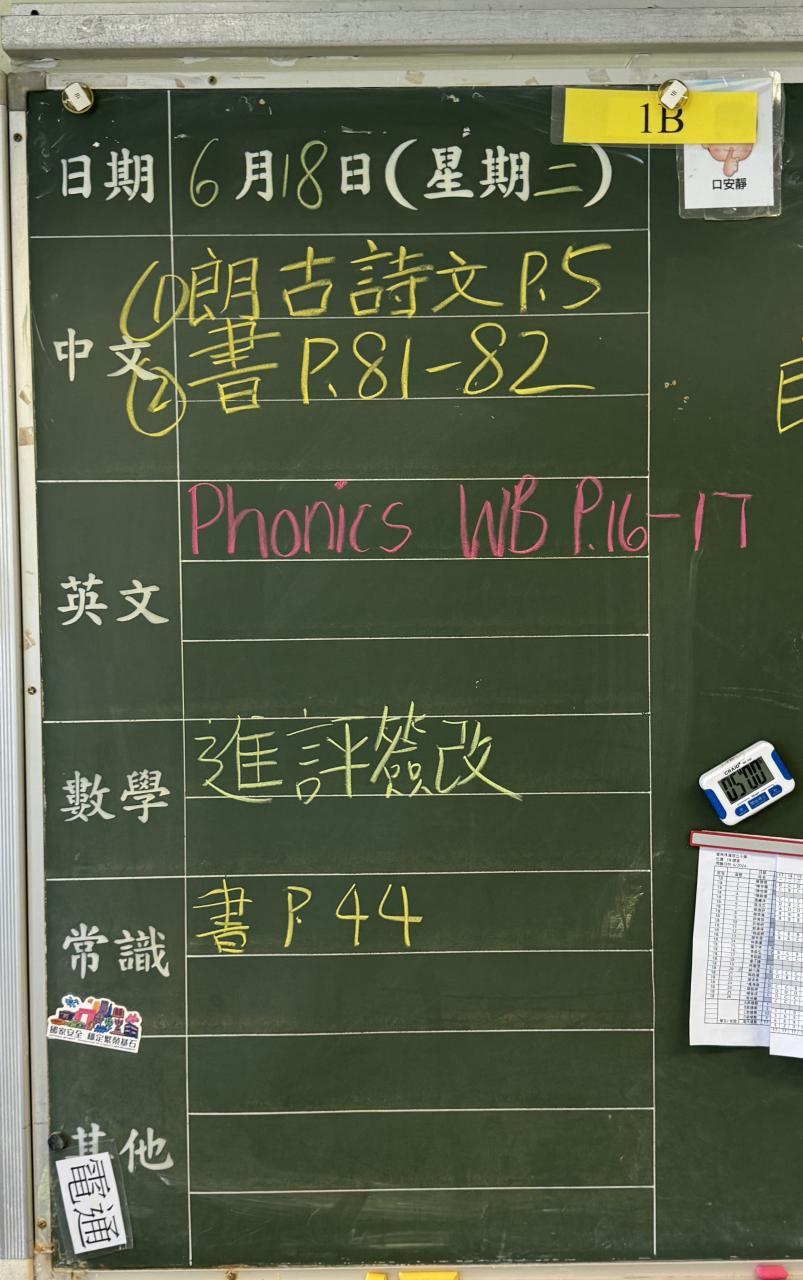 1B
口安靜
日期 6月18日(星期二)
中文
(1)朗古詩文 P.5
(2)書 P.81-82
英文
Phonics WB P.16-17
數學
進評簽改
05:00
常識
書 P.44
國家安全 穩定繁榮基石
其他
電通